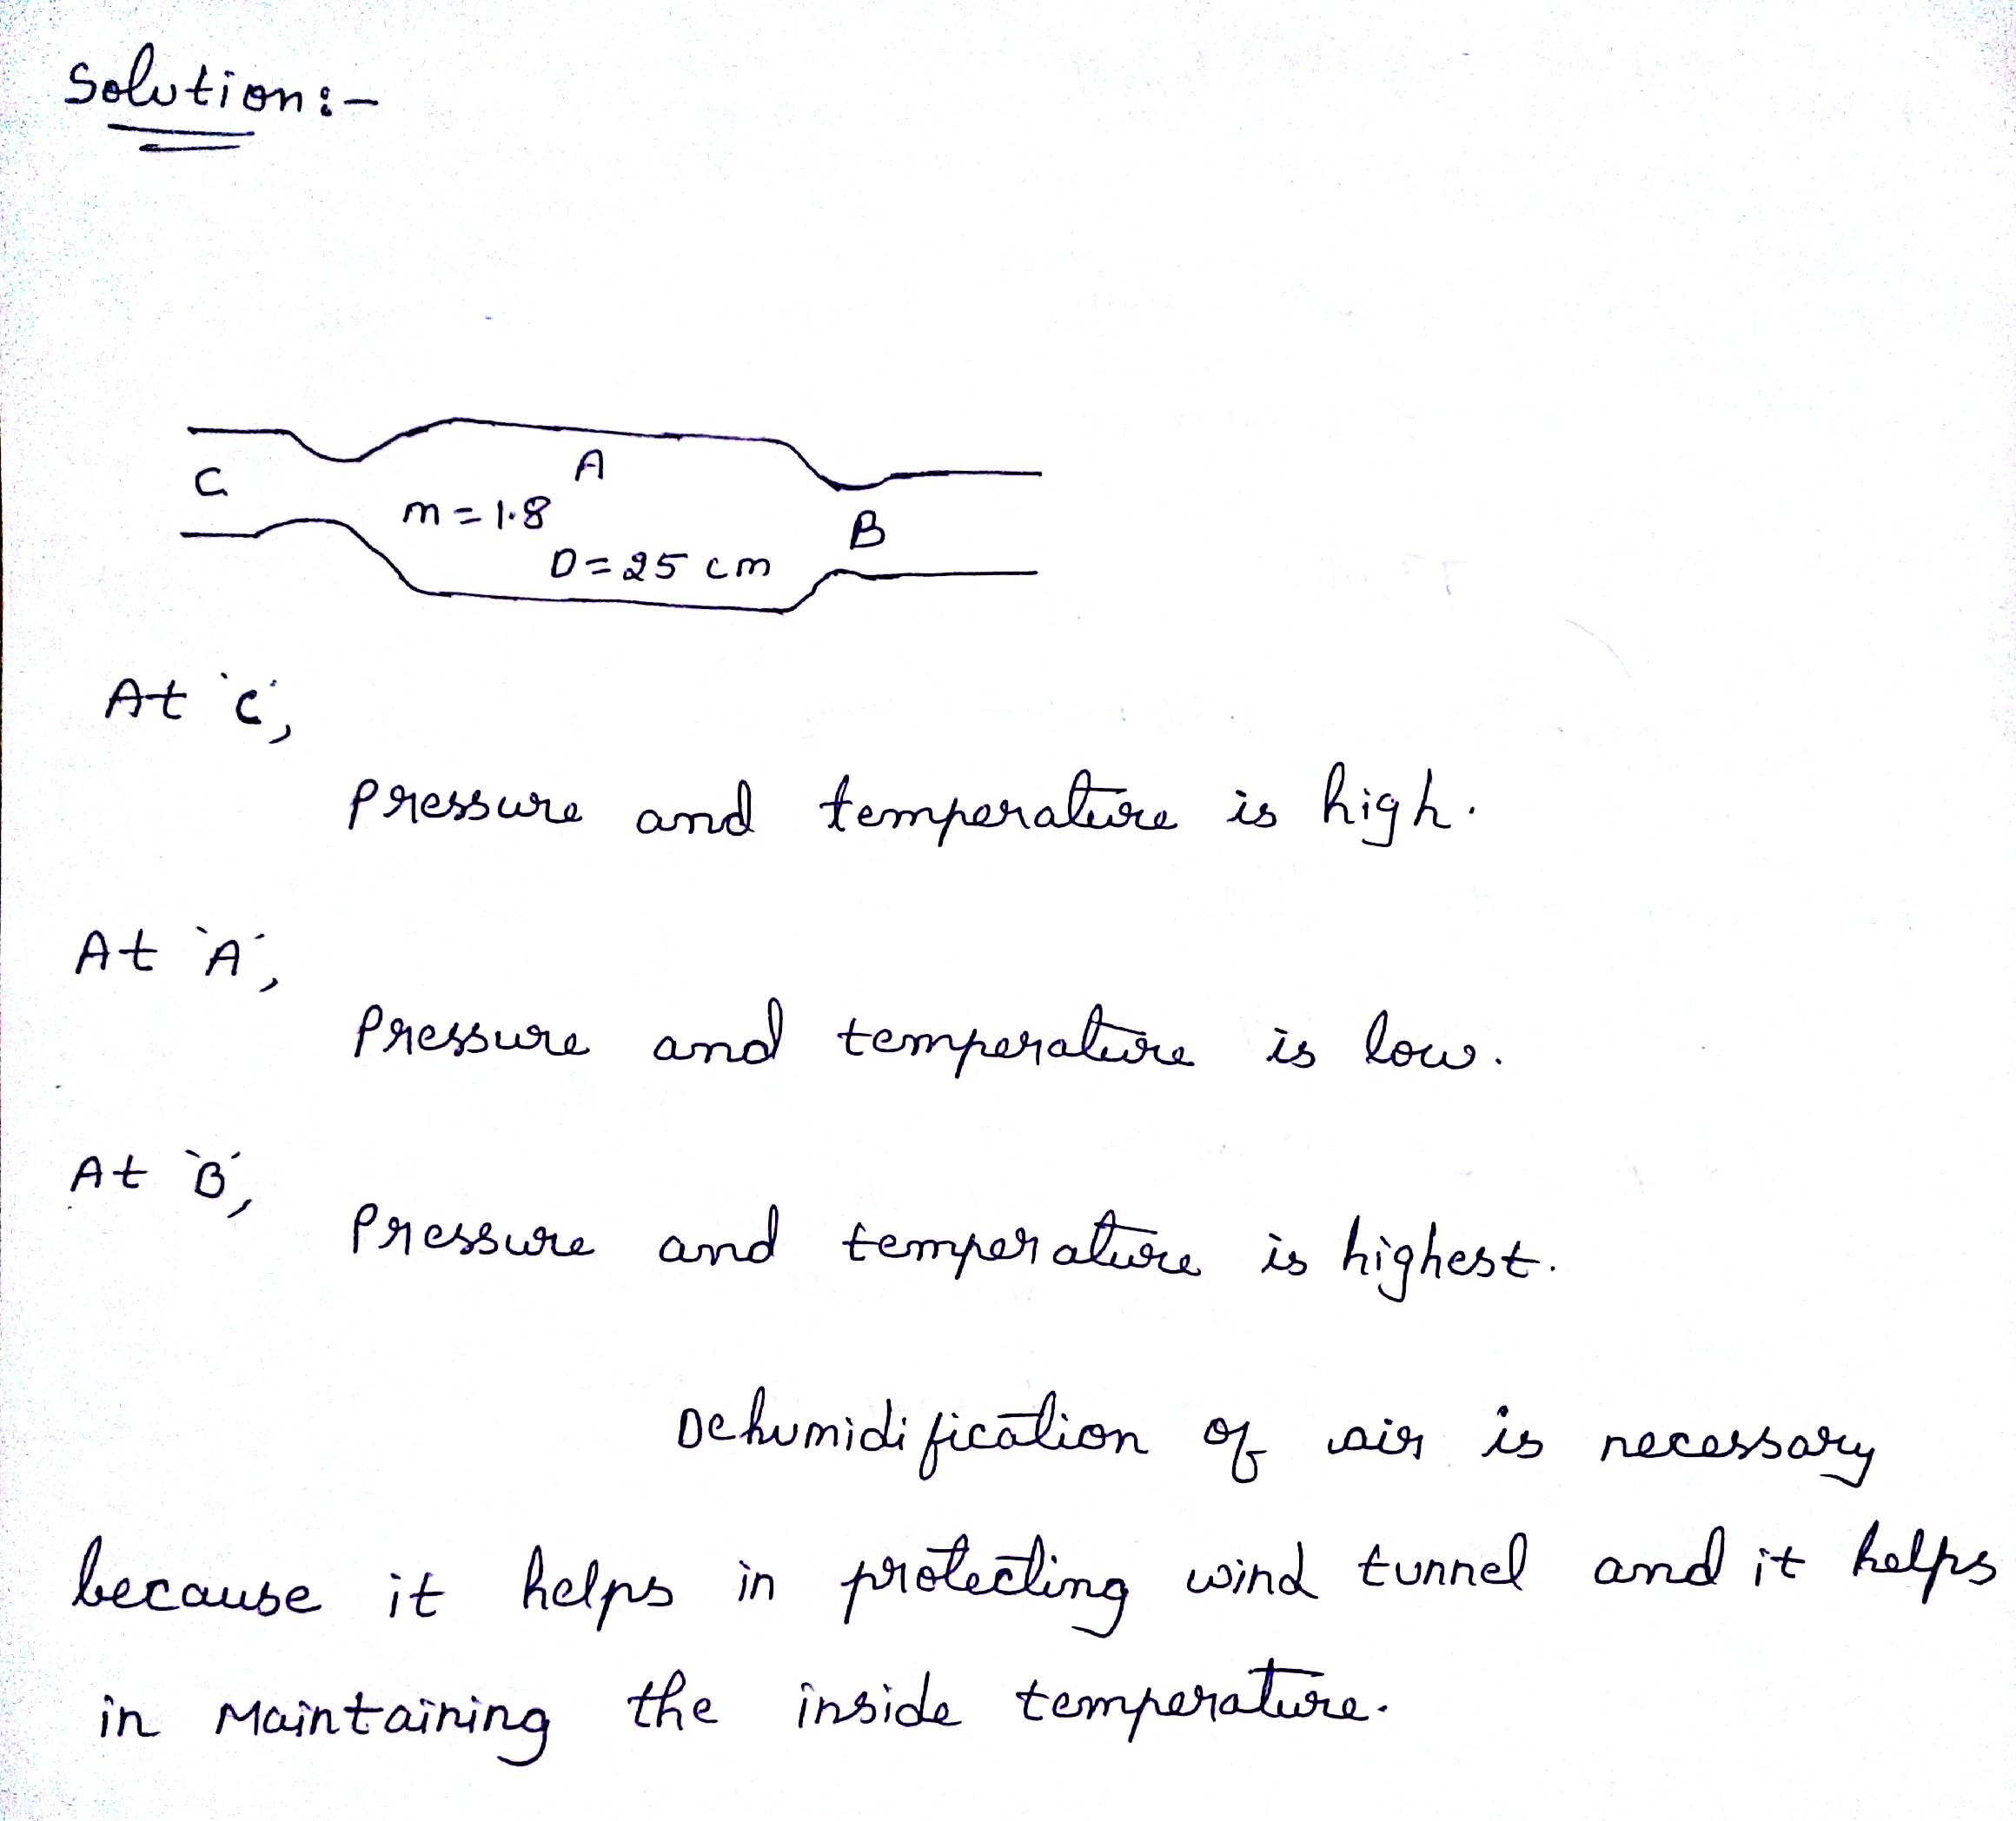 Solution:-
A
C
m = 1.8
B
D = 25 cm
At 'C',
Pressure and temperature is high.
At 'A',
Pressure and temperature is low.
At 'B',
Pressure and temperature is highest.
Dehumidification of air is necessary
because it helps in protecting wind tunnel and it helps
in Maintaining the inside temperature.